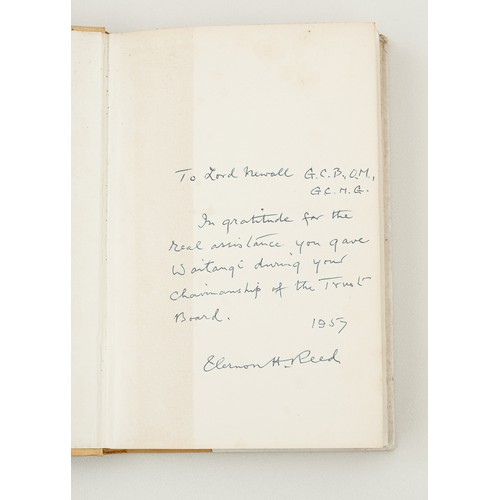 To Lord Newall G.C.B., O.M.,
G.C.M.G.
In gratitude for the
real assistance you gave
Waitangi during your
Chairmanship of the Trust
Board.
1957
Vernon H. Reed